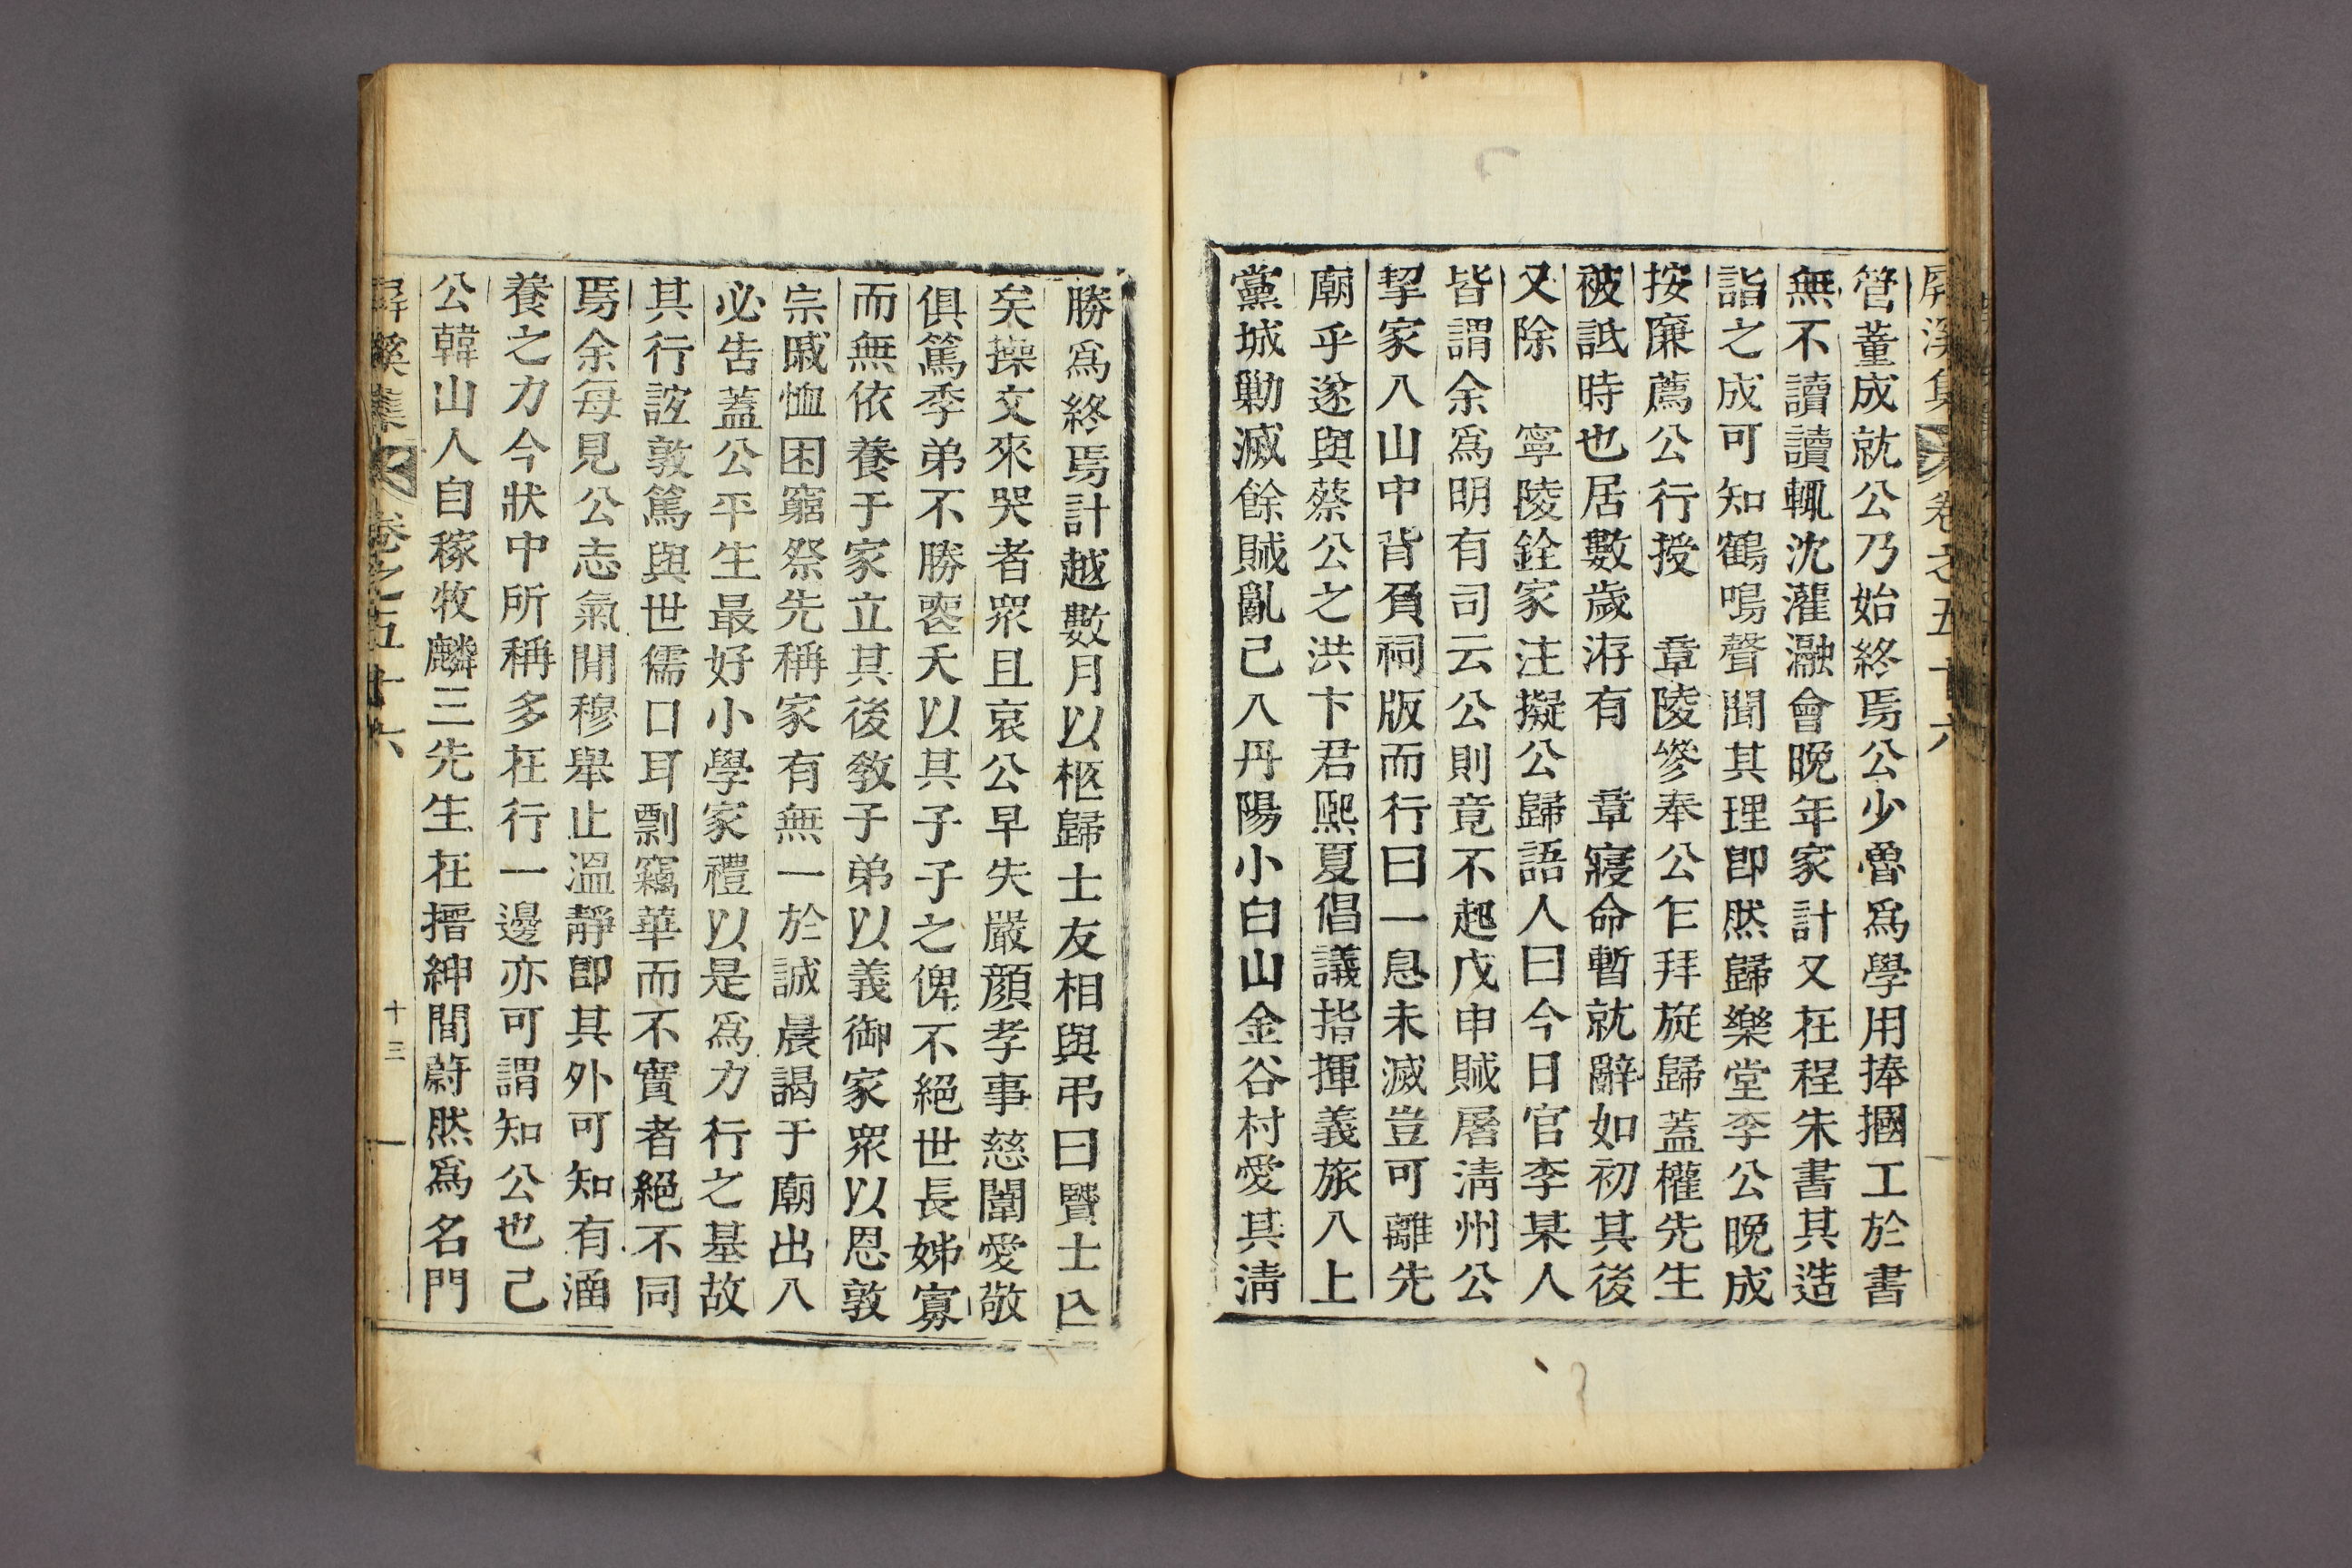 屛溪集 卷之五十六
管董成就公乃始終焉公少魯爲學用捧摑工於書
無不讀讀輒沈灌瀜會晩年家計又在程朱書其造
詣之成可知鶴鳴聲聞其理卽然歸樂堂李公晩成
按廉薦公行授 章陵參奉公乍拜旋歸蓋權先生
被詆時也居數歲洊有 章寢命暫就辭如初其後
又除 寧陵銓家注擬公歸語人曰今日官李某人
皆謂余爲明有司云公則竟不起戊申賊屠淸州公
挈家入山中背負祠版而行曰一息未滅豈可離先
廟乎遂與蔡公之洪卞君熙夏倡議指揮義旅入上
黨城勦滅餘賊亂已入丹陽小白山金谷村愛其淸
勝爲終焉計越數月以柩歸士友相與弔曰賢士亡
矣操文來哭者衆且哀公早失嚴顔孝事慈闈愛敬
俱篤季弟不勝喪夭以其子子之俾不絕世長姊寡
而無依養于家立其後敎子弟以義御家衆以恩敦
宗戚恤困窮祭先稱家有無一於誠晨謁于廟出入
必告蓋公平生最好小學家禮以是爲力行之基故
其行誼敦篤與世儒口耳剽竊華而不實者絕不同
焉余每見公志氣閒穆舉止溫靜卽其外可知有涵
養之力今狀中所稱多在行一邊亦可謂知公也已
公韓山人自稼牧麟三先生在搢紳間蔚然爲名門
屛溪集 卷之五十六 十三